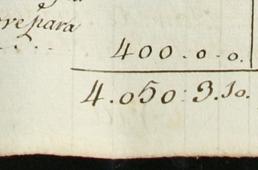 prepara
400.0.0.
4.050:3.10.